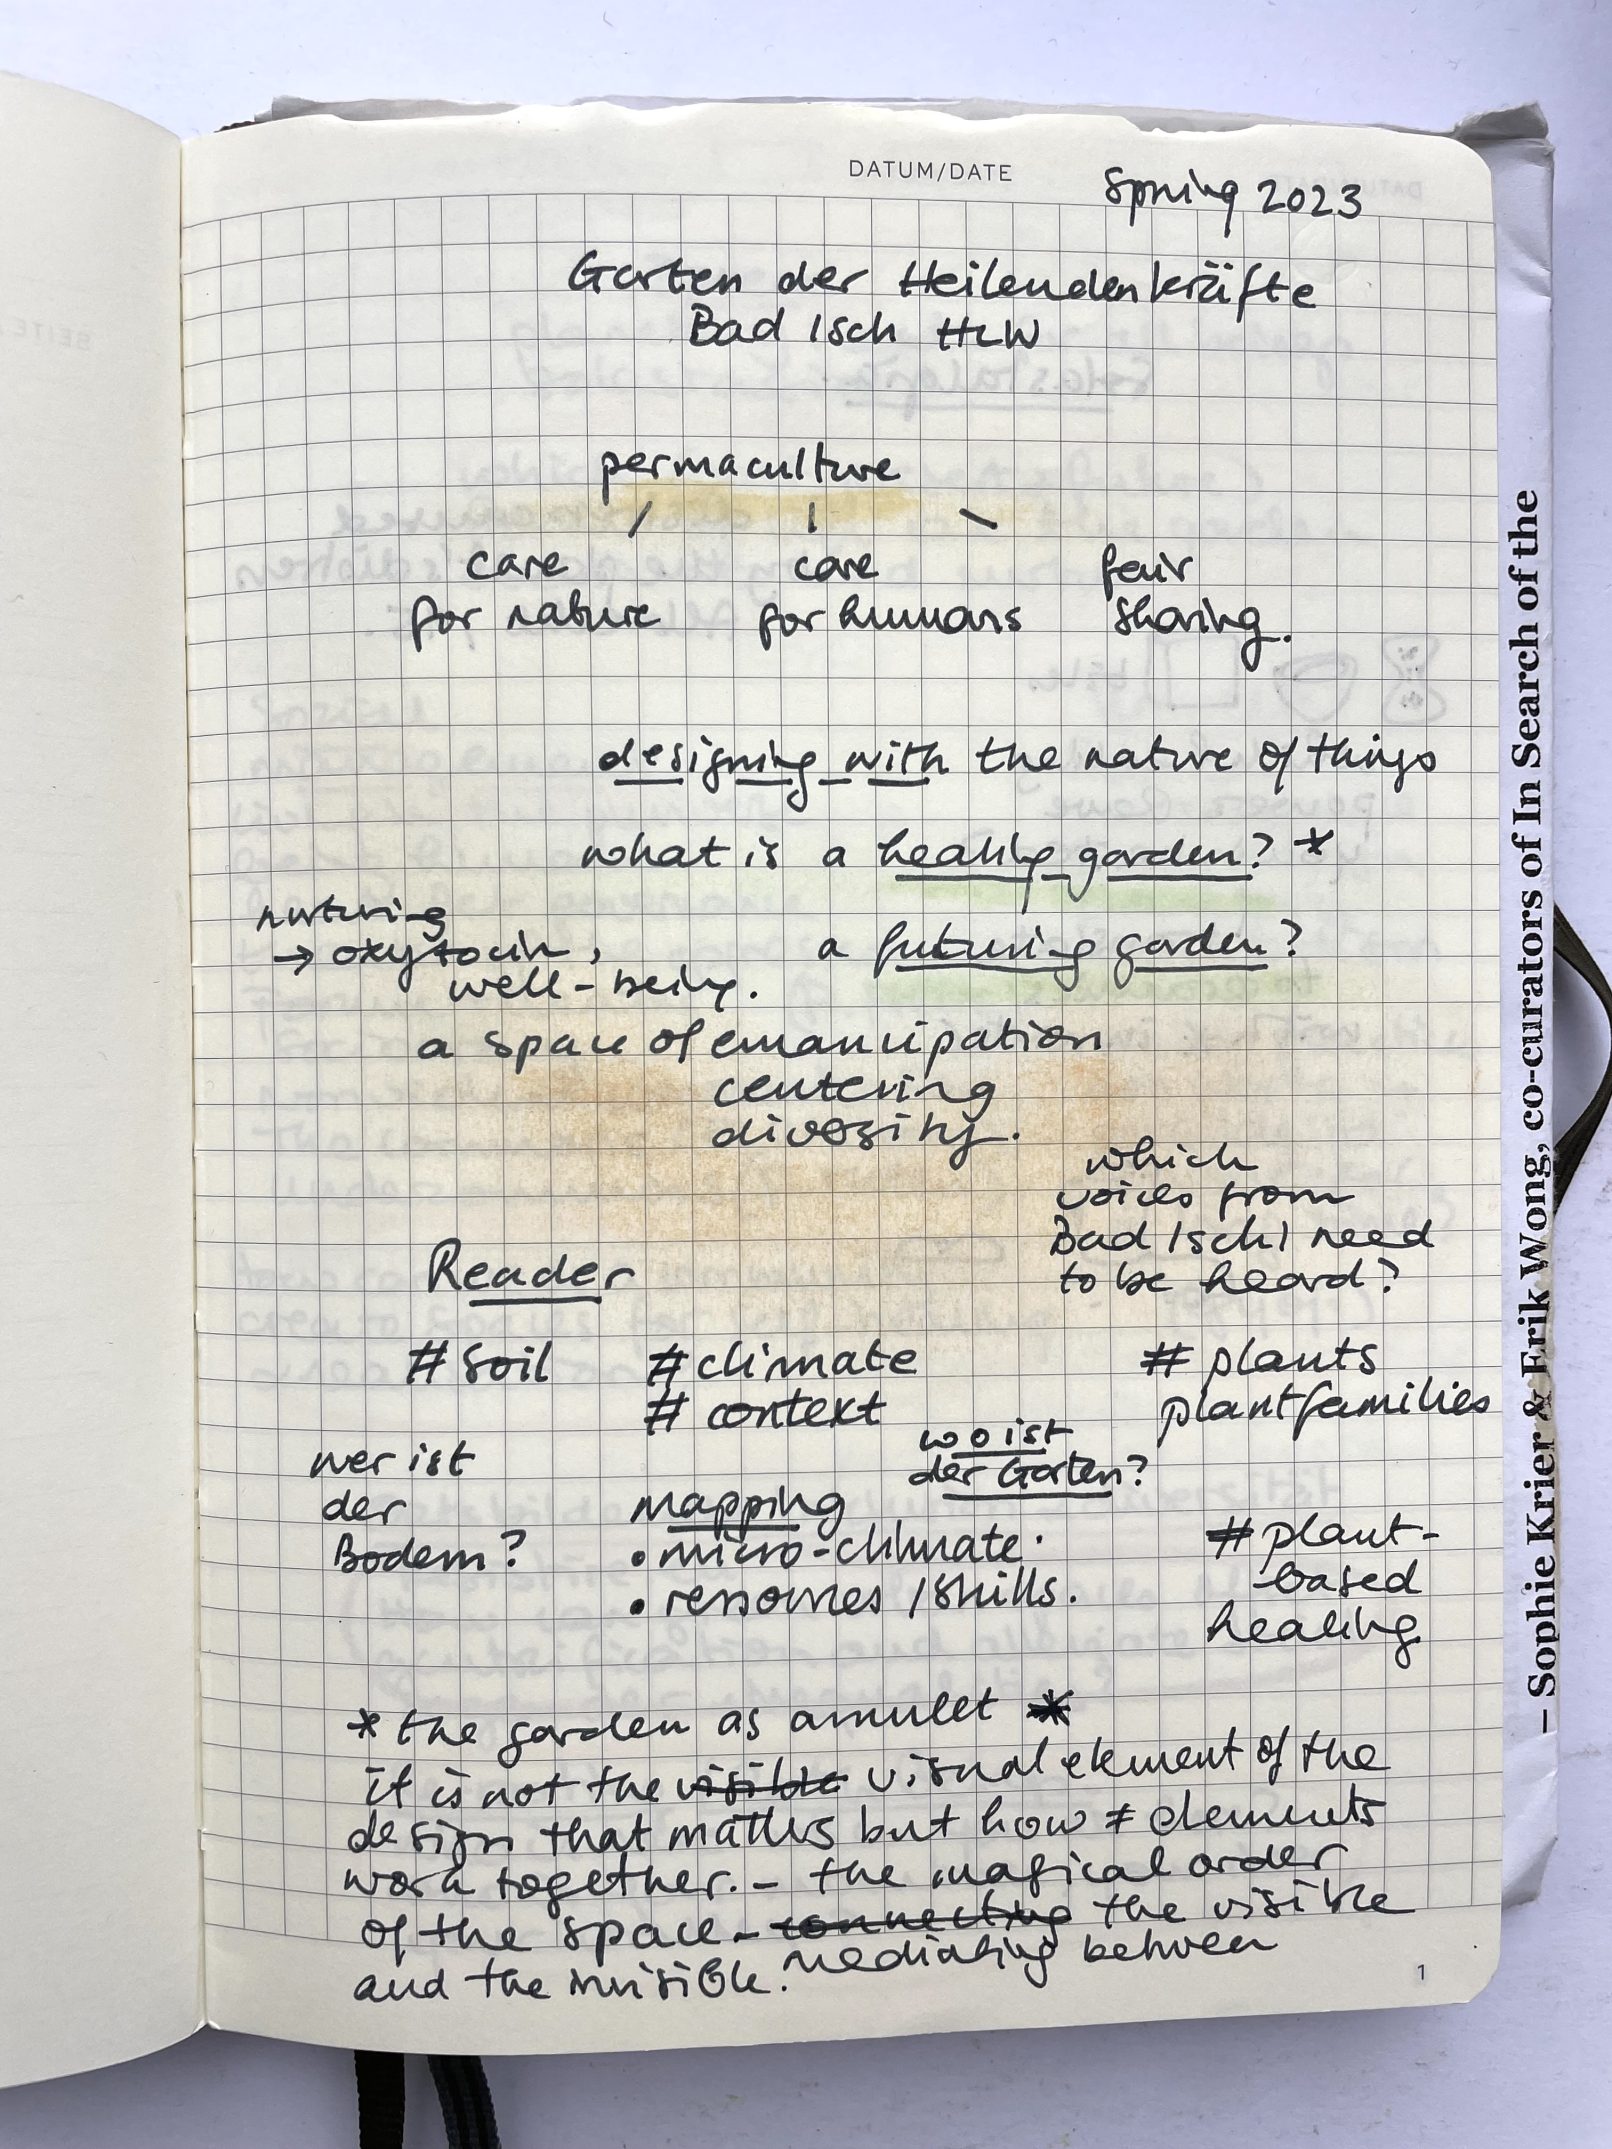 DATUM/DATE
spring 2023
Garten der Heilenden kräfte
Bad Isch HLW
permaculture
care
for nature
care
for humans
fair
sharing.
designing with the nature of things
what is a healing garden? *
nurturing
→ oxytocin,
well-being.
a futuring garden?
a space of emancipation
centering
diversity.
which
voices from
Bad Ischl need
to be heard?
Reader
# soil
# climate
# context
# plants
plantfamilies
wer ist
der
Bodem?
wo ist
der Garten?
mapping
• micro-climate.
• ressources / skills.
# plant-
based
healing
* the garden as amulet *
it is not the visible visual element of the
design that matters but how ≠ elements
work together. – the magical order
of the space – connecting the visible
mediating between
and the invisible.
1
– Sophie Krier & Erik Wong, co-curators of In Search of the